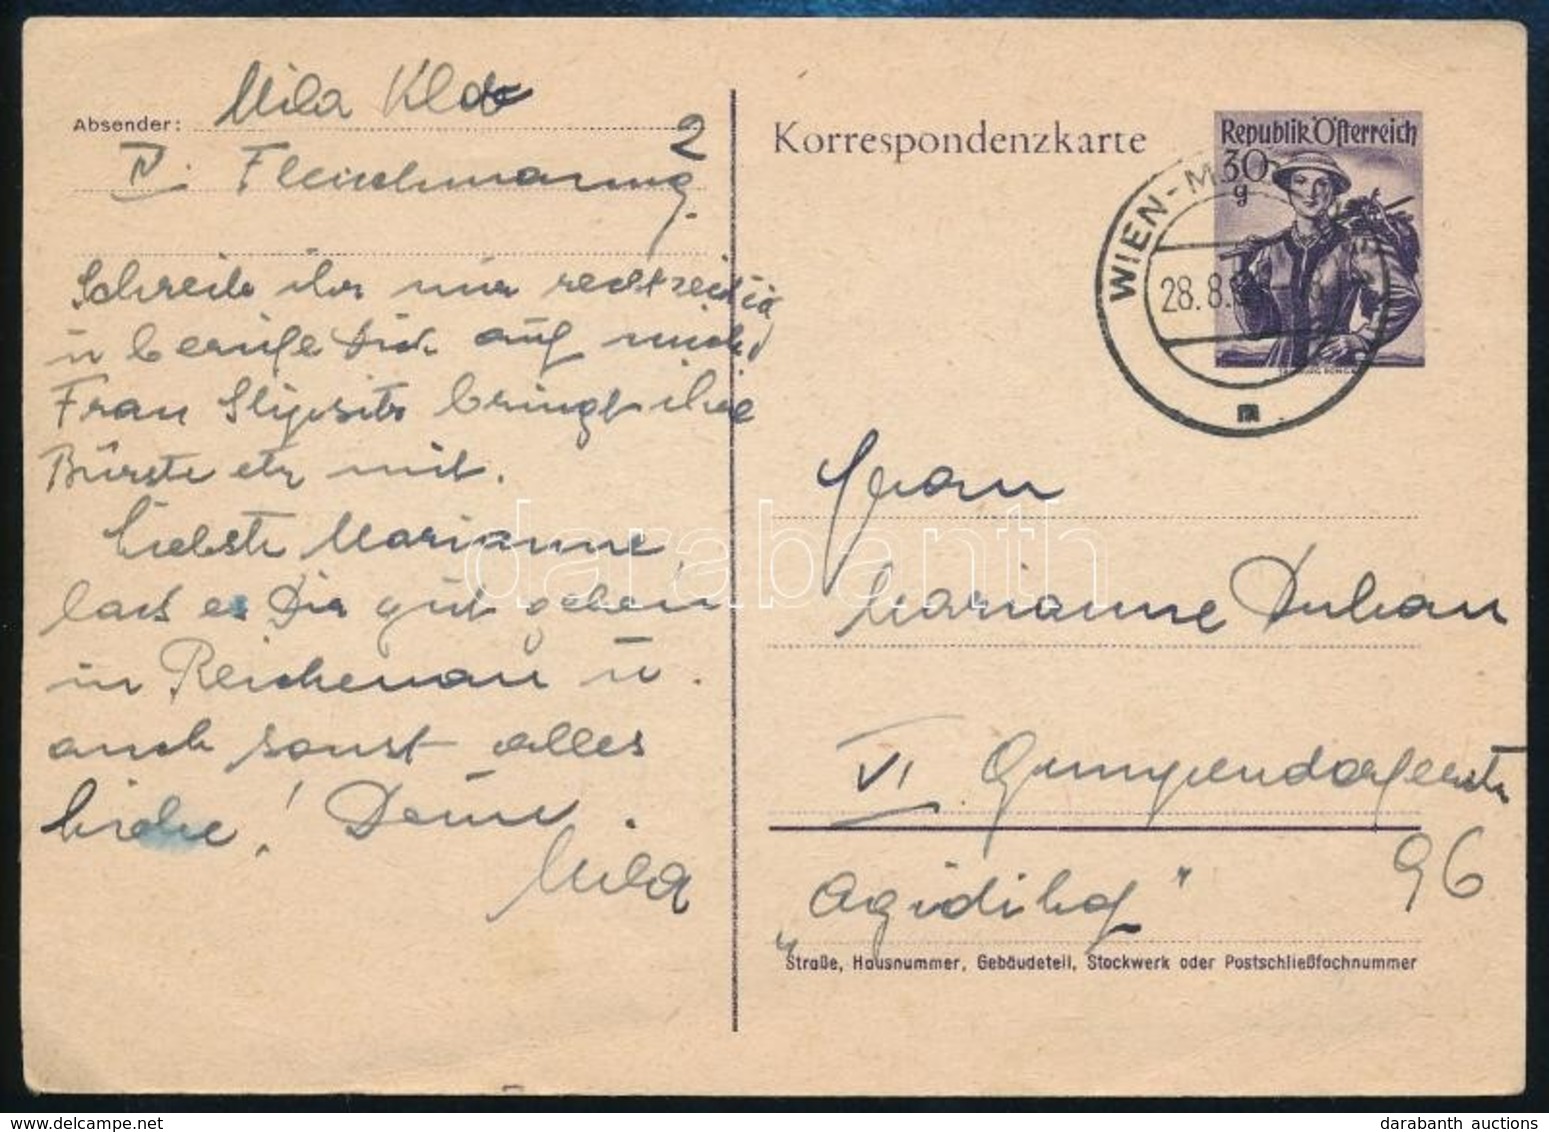 Absender: Mila
IV. Fleischmanng. 2
Schreibe ihr nur rechtzeitig
u berufe Dich auf mich,
Frau bringt ihre
Bürste etz mit.
Liebste Marianne,
lass es Dir gut gehen
in Reichenau u.
auch sonst alles
Liebe! Deine
Mila
Korrespondenzkarte
Republik Österreich
30
g
WIEN
28.8.
Frau
Marianne
VI Gumpendorferstr
96
„Agidihof"
Straße, Hausnummer, Gebäudeteil, Stockwerk oder Postschließfachnummer
darabanth
darabanth auctions